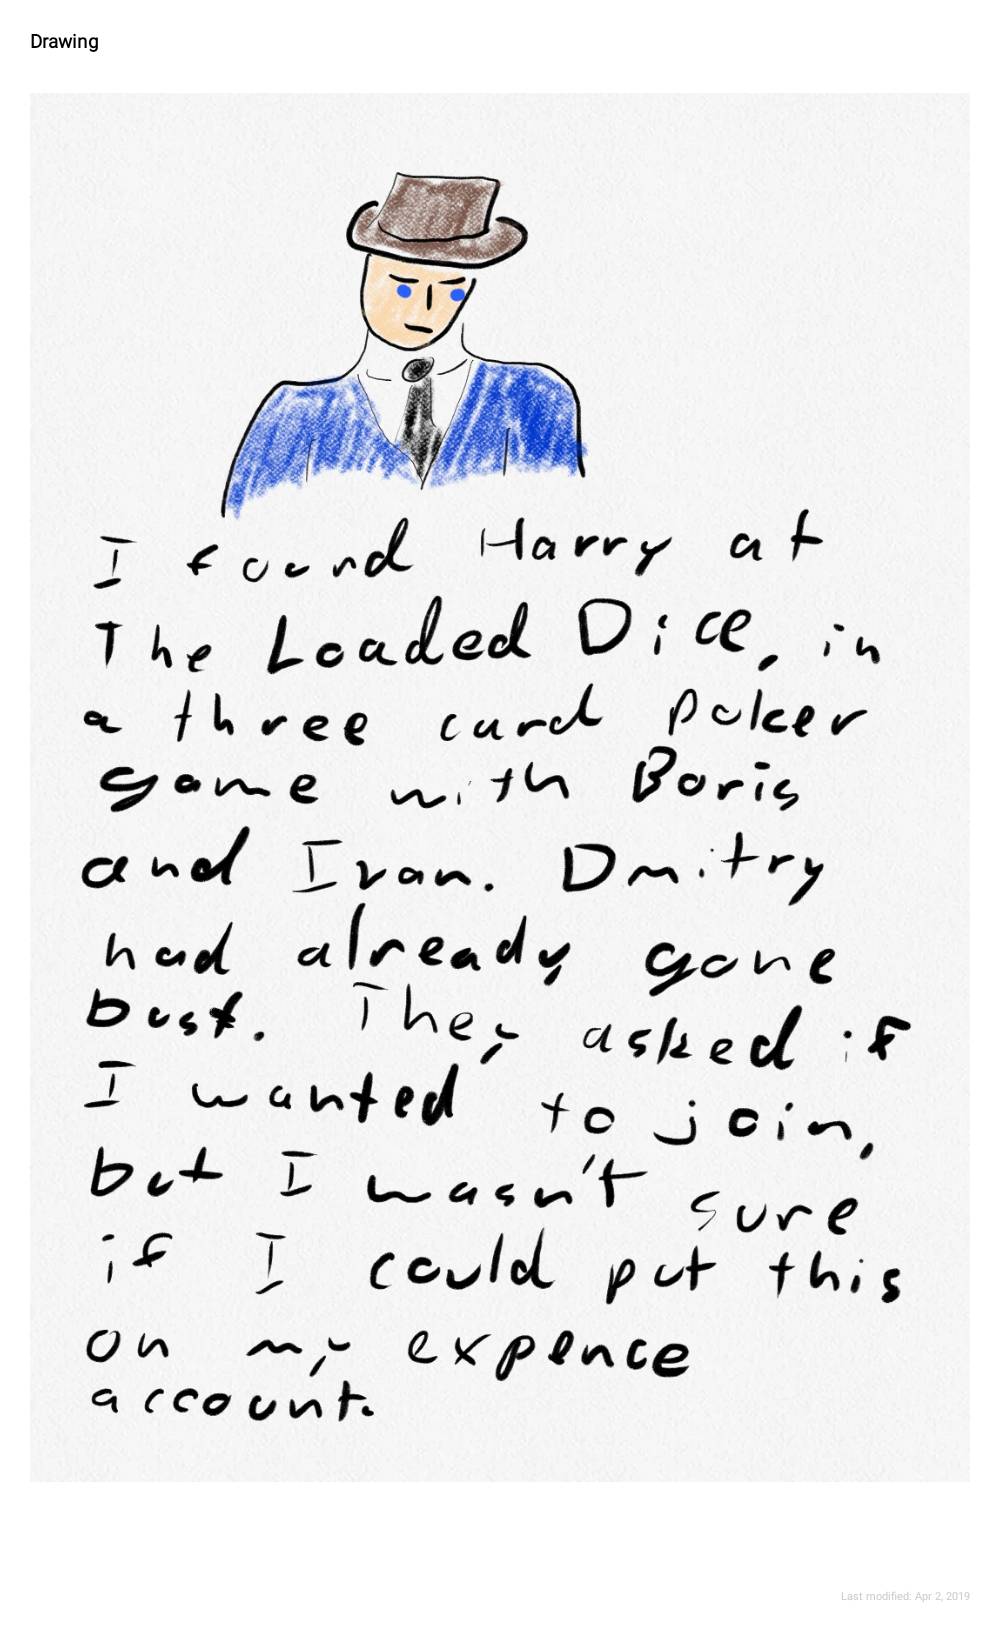 Drawing
I found Harry at
The Loaded Dice, in
a three card poker
game with Boris
and Ivan. Dmitry
had already gone
bust. They asked if
I wanted to join,
but I wasn't sure
if I could put this
on my expence
account.
Last modified: Apr 2, 2019